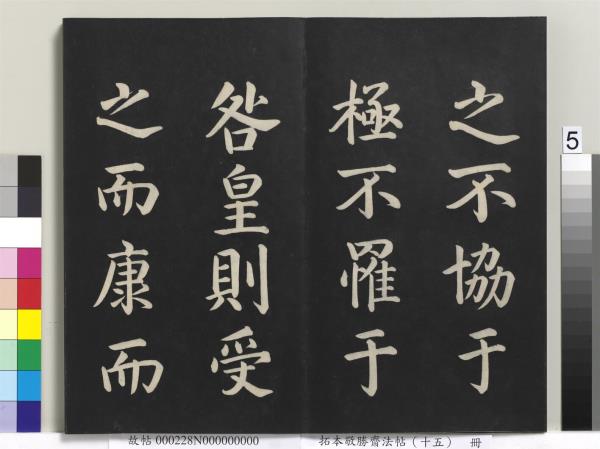 之不協于
極不罹于
咎皇則受
之而康而
5
故帖 000228N000000000
拓本敬勝齋法帖（十五） 冊